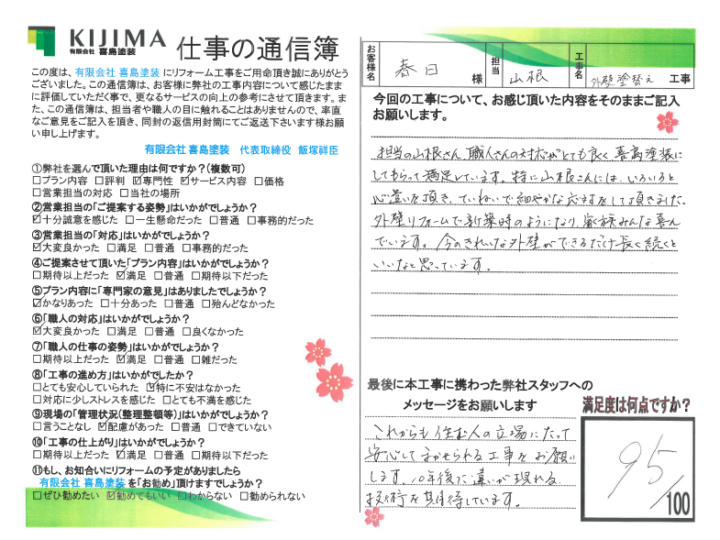 KIJIMA
有限会社 喜島塗装
仕事の通信簿
この度は、有限会社 喜島塗装 にリフォーム工事をご用命頂き誠にありがとう
ございました。この通信簿は、お客様に弊社の工事内容について感じたまま
に評価していただく事で、更なるサービスの向上の参考にさせて頂きます。ま
た、この通信簿は、担当者や職人の目に触れることはありませんので、率直
なご意見をご記入を頂き、同封の返信用封筒にてご返送下さいます様お願
い申し上げます。
有限会社 喜島塗装 代表取締役 飯塚祥臣
①弊社を選んで頂いた理由は何ですか?(複数可)
□プラン内容 □評判 ☑専門性 ☑サービス内容 □価格
□営業担当の対応 □当社の場所
②営業担当の「ご提案する姿勢」はいかがでしょうか?
☑十分誠意を感じた □一生懸命だった □普通 □事務的だった
③営業担当の「対応」はいかがでしょうか?
☑大変良かった □満足 □普通 □事務的だった
④ご提案させて頂いた「プラン内容」はいかがでしょうか?
□期待以上だった ☑満足 □普通 □期待以下だった
⑤プラン内容に「専門家の意見」はありましたでしょうか?
☑かなりあった □十分あった □普通 □殆んどなかった
⑥「職人の対応」はいかがでしょうか?
☑大変良かった □満足 □普通 □良くなかった
⑦「職人の仕事の姿勢」はいかがでしょうか?
□期待以上だった ☑満足 □普通 □雑だった
⑧「工事の進め方」はいかがでしたか?
□とても安心していられた ☑特に不安はなかった
□対応に少しストレスを感じた □とても不満を感じた
⑨現場の「管理状況(整理整頓等)」はいかがでしょうか?
□言うことなし ☑配慮があった □普通 □できていない
⑩「工事の仕上がり」はいかがでしょうか?
□期待以上だった ☑満足 □普通 □期待以下だった
⑪もし、お知合いにリフォームの予定がありましたら
有限会社 喜島塗装 を「お勧め」頂けますでしょうか?
□ぜひ勧めたい ☑勧めてもいい □わからない □勧められない
お客様名 春日 様 担当 山根 工事名 外壁塗替え 工事
今回の工事について、お感じ頂いた内容をそのままご記入
お願いします。
担当の山根さん、職人さんの対応がとても良く、喜島塗装に
してもらって満足しています。特に山根さんには、いろいろと
心遣いを頂き、ていねいで細やかな応対をして頂きました。
外壁リフォームで新築時のようになり、家族みんな喜ん
でいます。今のきれいな外壁ができるだけ長く続くと
いいなと思っています。
最後に本工事に携わった弊社スタッフへの
メッセージをお願いします
これからも住む人の立場にたって
安心してまかせられる工事をお願い
します。10年後に違いが現れる
技術を期待しています。
満足度は何点ですか?
95/100